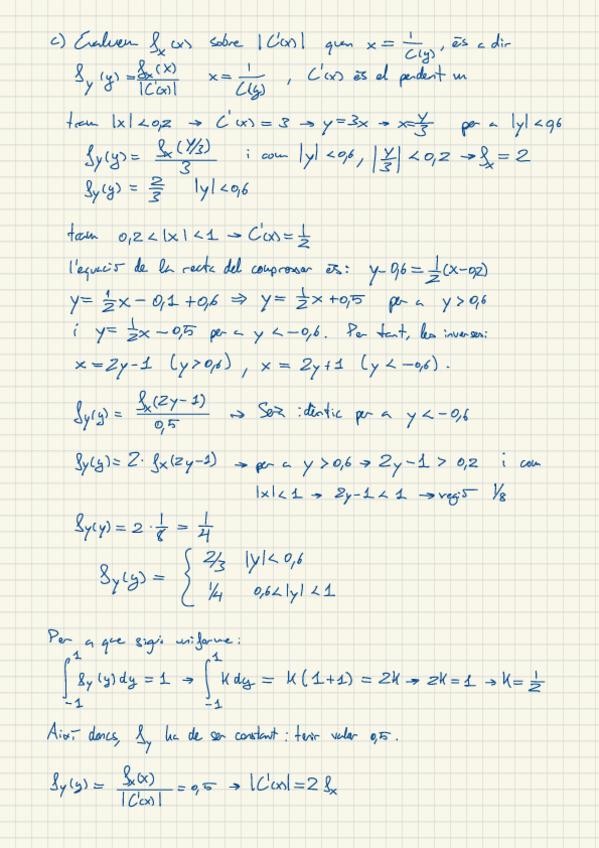 c) Evaluem fx(x) sobre |C'(x)| quan x = 1/C(y), és a dir
fy(y) = fx(x)/|C'(x)|   x = 1/C(y) , C'(x) és el pendent m
tram |x|<0,2 → C'(x) = 3 → y=3x → x=y/3 per a |y|<0,6
fy(y) = fx(y/3)/3 i com |y|<0,6, |y/3|<0,2 → fx = 2
fy(y) = 2/3 |y|<0,6
tram 0,2<|x|<1 → C'(x)=1/2
l'equació de la recta del compressor és: y-0,6 = 1/2(x-0,2)
y = 1/2x - 0,1 + 0,6 ⇒ y = 1/2x + 0,5 per a y>0,6
i y = 1/2x - 0,5 per a y<-0,6. Per tant, les inverses:
x = 2y-1 (y>0,6), x = 2y+1 (y<-0,6).
fy(y) = fx(2y-1)/0,5 → Serà idèntic per a y<-0,6
fy(y) = 2· fx(2y-1) → per a y>0,6 → 2y-1 > 0,2 i com
|x|<1 → 2y-1<1 → regió 1/8
fy(y) = 2 · 1/8 = 1/4
fy(y) = { 2/3 |y|<0,6
1/4 0,6<|y|<1
Per a que sigui uniforme:
∫_{-1}^{1} fy(y)dy = 1 → ∫_{-1}^{1} k dy = k(1+1) = 2k → 2k=1 → k=1/2
Així doncs, fy ha de ser constant: tenir valor 0,5.
fy(y) = fx(x)/|C'(x)| = 0,5 → |C'(x)| = 2 fx